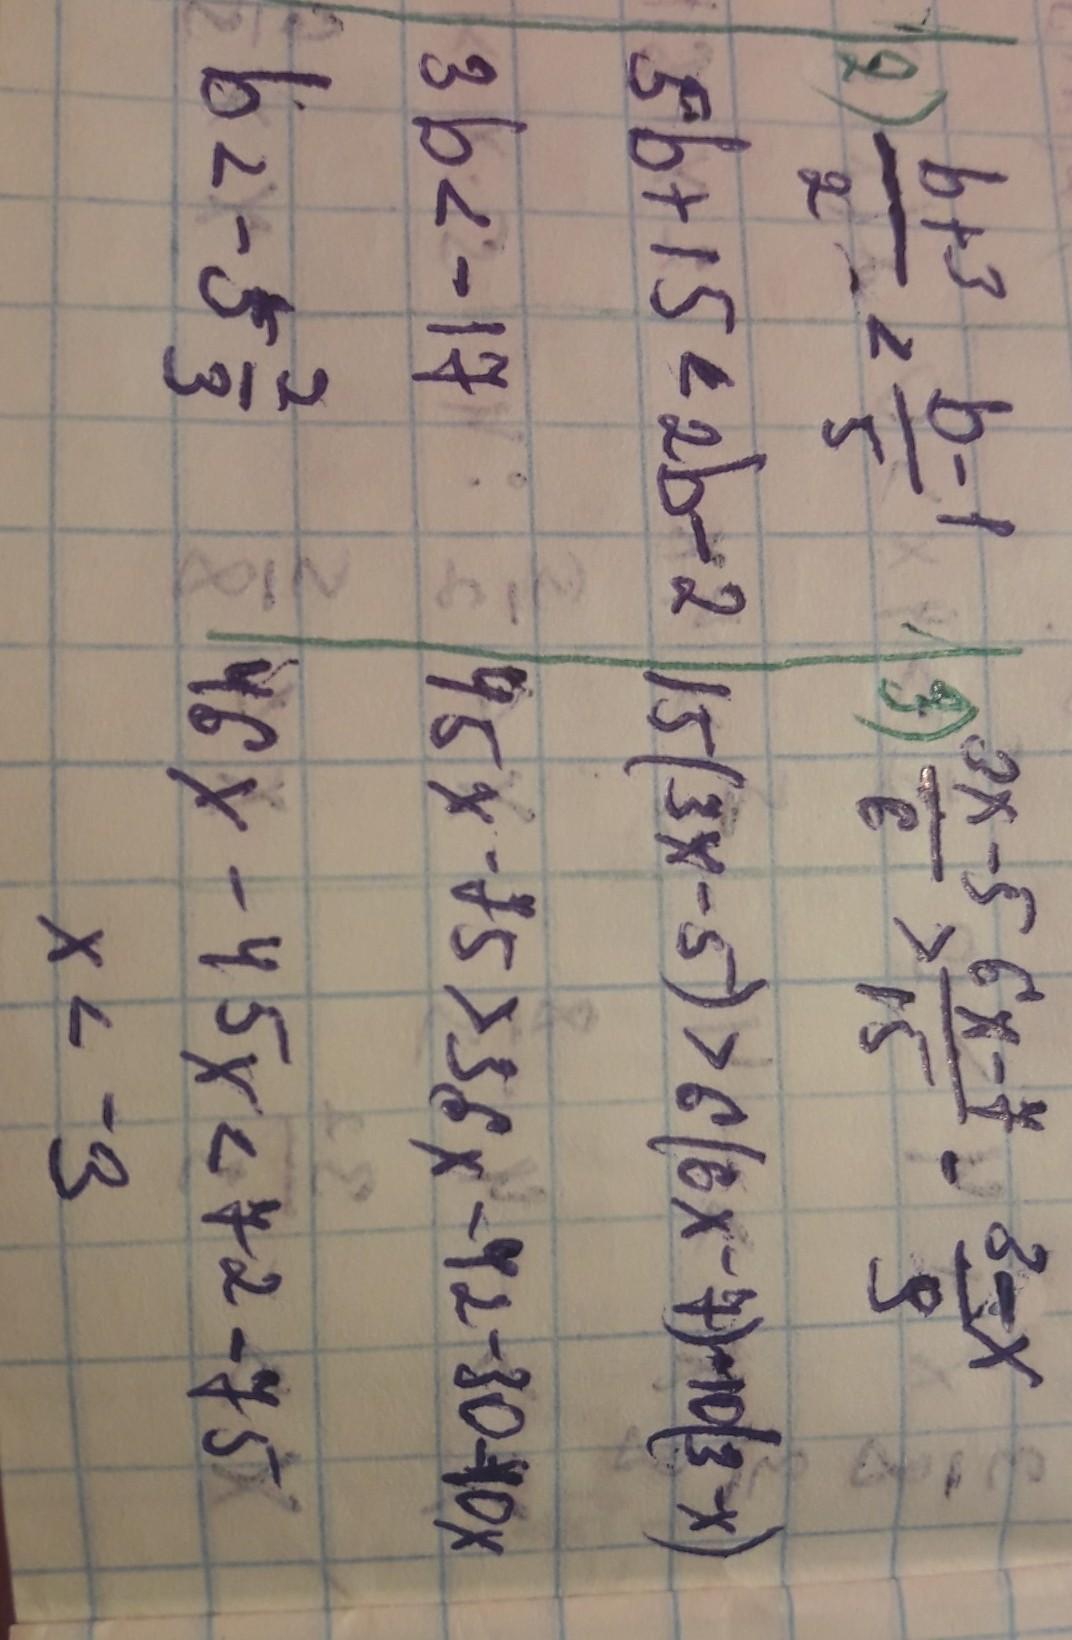 2) b+3/2 < b-1/5
5b+15<2b-2
3b<-17
b<-5 2/3
3) 3x-5/6 > 6x-7/15 - 3-x/9
15(3x-5)>6(6x-7)-10(3-x)
45x-75>36x-42-30-10x
46x-45x<72-75
x<-3